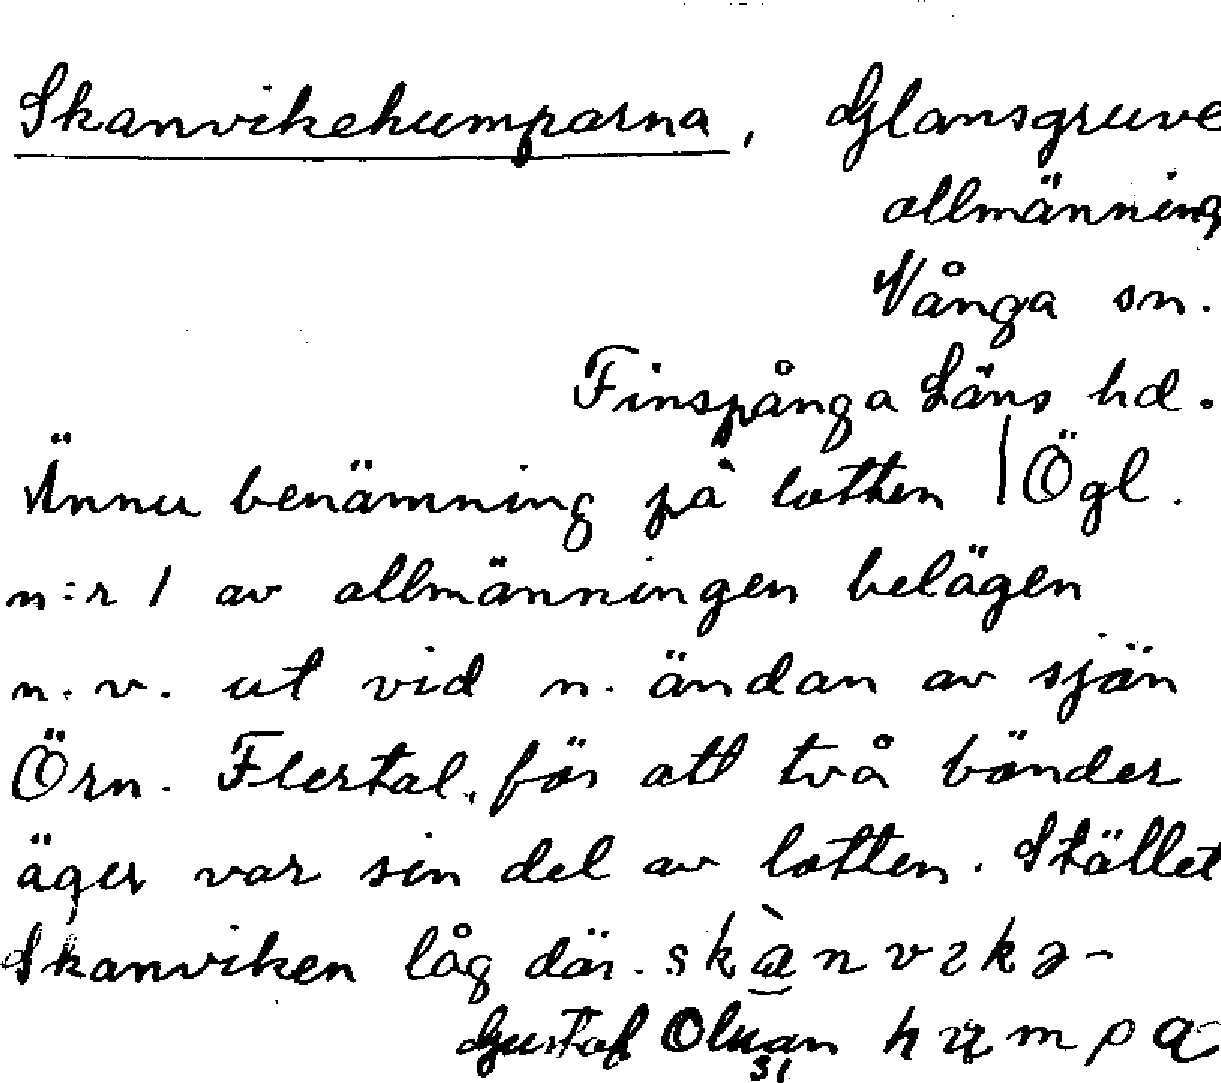 Skanvikehumparna, Glansgruve
allmänning
Vånga sn.
Finspånga Läns hd.
Ännu benämning på lotten / Ögl.
n:r 1 av allmänningen belägen
n.v. ut vid n. ändan av sjön
Örn. Flertal, för att två bönder
äger var sin del av lotten. Stället
Skanviken låg där. skànvɛkə-
Gustaf humpa
31